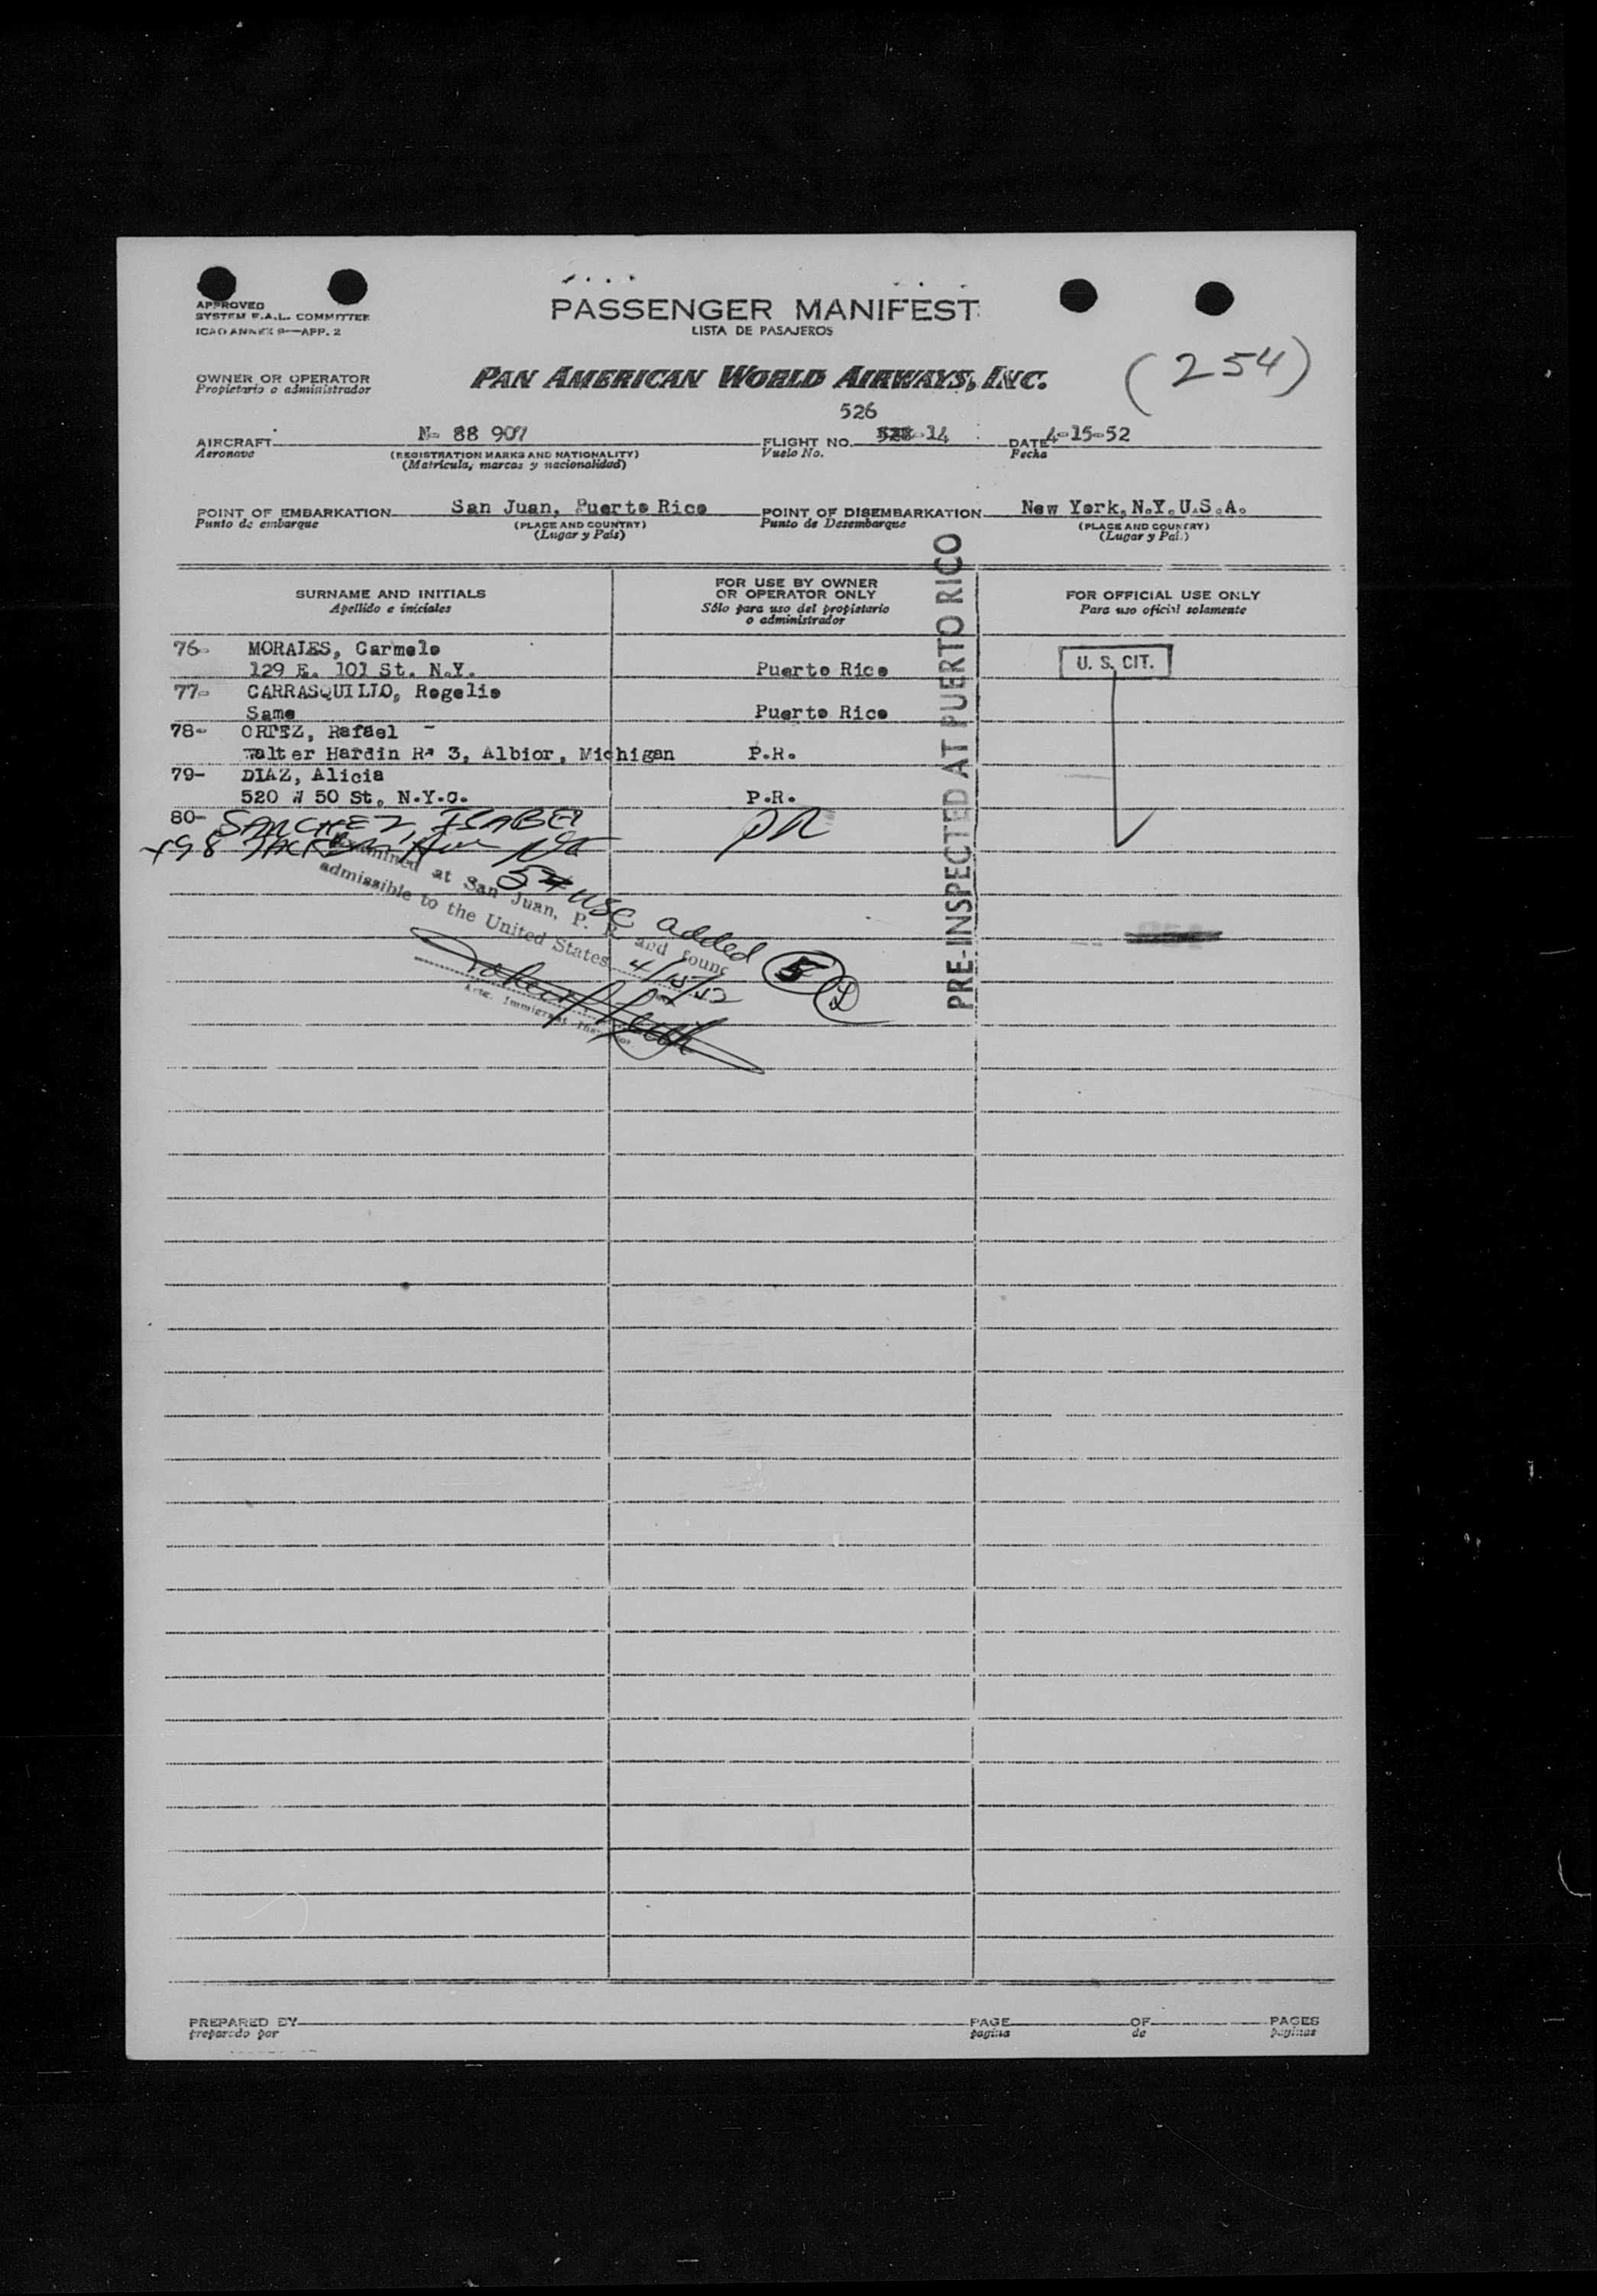 APPROVED
SYSTEM F.A.L. COMMITTEE
ICAO ANNEX 9—APP. 2
PASSENGER MANIFEST
LISTA DE PASAJEROS
(254)
OWNER OR OPERATOR
Propietario o administrador
PAN AMERICAN WORLD AIRWAYS, INC.
526
AIRCRAFT N- 88 907 FLIGHT NO. 14 DATE 4-15-52
Aeronave (REGISTRATION MARKS AND NATIONALITY) Vuelo No. Fecha
(Matrícula, marcas y nacionalidad)
POINT OF EMBARKATION San Juan, Puerto Rico POINT OF DISEMBARKATION New York, N.Y. U.S.A.
Punto de embarque (PLACE AND COUNTRY) Punto de Desembarque (PLACE AND COUNTRY)
(Lugar y País) (Lugar y País)
SURNAME AND INITIALS FOR USE BY OWNER OR OPERATOR ONLY FOR OFFICIAL USE ONLY
Apellido e iniciales Sólo para uso del propietario o administrador Para uso oficial solamente
PRE-INSPECTED AT PUERTO RICO
76- MORALES, Carmelo
129 E. 101 St. N.Y. Puerto Rico U. S. CIT.
77- CARRASQUILLO, Rogelio
Same Puerto Rico
78- ORTIZ, Rafael -
Walter Hardin R# 3, Albior, Michigan P.R.
79- DIAZ, Alicia
520 W 50 St, N.Y.C. P.R.
80- SANCHEZ, ISABEL PR
798 JACKSON Ave
5 USC added 5
Examined at San Juan, P. R. and found
admissible to the United States 4/15/52
Actg. Immigrant Inspector
PREPARED BY PAGE OF PAGES
preparado por pagina de paginas